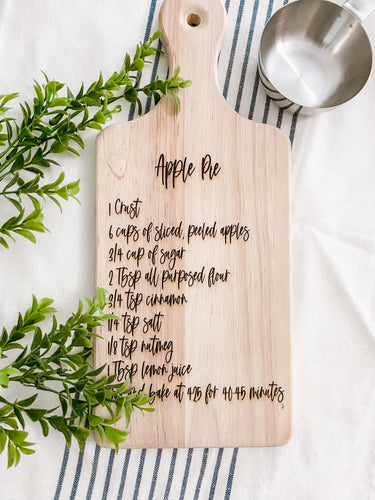 Apple Pie
1 Crust
6 cups of sliced, peeled apples
3/4 cup of sugar
2 Tbsp all purposed flour
3/4 tsp cinnamon
1/4 tsp salt
1/8 tsp nutmeg
1 Tbsp lemon juice
and bake at 425 for 40-45 minutes